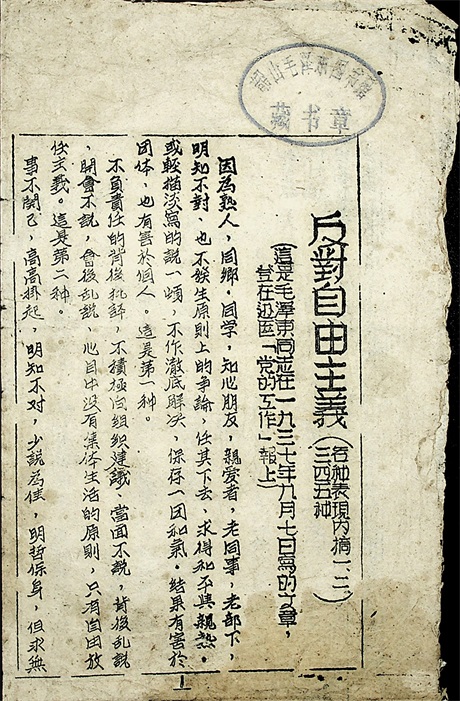 韶山毛泽东图书馆
藏书章
反對自由主義（各种表現内摘一、二、
三四五种）
（這是毛澤東同志在一九三七年九月七日寫的文章，
登在边區「党的工作」報上）
因為熟人，同鄉·同学，知心朋友，親爱者，老同事，老部下，
明知不對、也不發生原則上的争論，任其下去，求得和平與親热。
或輕描淡寫的說一頓，不作澈底解决，保存一团和氣。结果有害於
团体，也有害於個人。這是第一种。
不負責任的背後批評，不積極向组織建議、當面不說，背後乱說
，開會不說，會後乱説，心目中没有集体生活的原則，只有自由放
任主義。這是第二种。
事不関己，高高掛起，明知不对，少說為佳，明哲保身，但求無
1